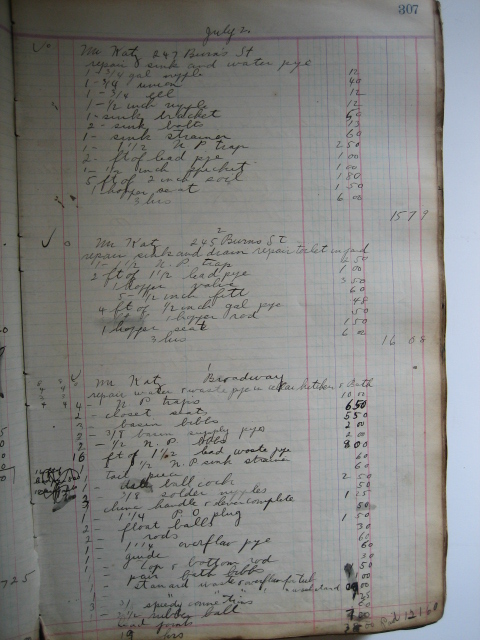 307
July 2
Mr Katz 247 Burns St
repair sink and water pye
1 - 3/4 gal nypple 12
1 - 3/4 union 40
1 - 3/4 ell 12
1 - 1/2 inch nypple 12
1 - sink bracket 50
2 - sink bolts 13
1 - sink strainer 60
1 - 1 1/2 N P trap 2 50
2 - ft of lead pye 1 00
1 - 1/2 inch 1 00
5 ft of 2 inch soil 1 80
1 hopper seat 1 50
3 hrs 6 00
15 79
2
Mr Katz 245 Burns St
repair sink and drain repair toilet in yard
1 - 1 1/2 N. P trap 2 50
2 ft of 1 1/2 lead pye 1 00
1 hopper valve 3 50
5 - 1/2 inch fitt 60
4 ft of 1/2 inch gal pye 48
1 hopper rod 50
1 hopper seat 1 50
3 hrs 6 00
16 08
1
Mr Katz Broadway
repair water & waste pye in kitchen & Bath
4 - N P traps 10 00
2 - closet seats 6 50
3 basin bibbs 5 50
2 - 3/8 basin supply pye 2 00
2 - 1/2 N. P bibbs 2 00
16 ft of 1 1/2 lead waste pye 8 00
1 - 1 1/2 N. P sink strainer 60
1 tail piece 60
1 - ball cock 2 50
2 3/8 solder nypples 50
3 china handle & lever complete 1 25
1 - 1 1/4 P O plug 50
2 float balls 1 50
2 rods 30
1 1 1/4 overflow pye 60
1 guide 60
1 top & bottom rod 30
1 pair bath bibbs 50
1 standard waste & overflow for tub
3 - 3/8 speedy connections
1 - 1/2 rubber ball
lead joints
19 hrs
725